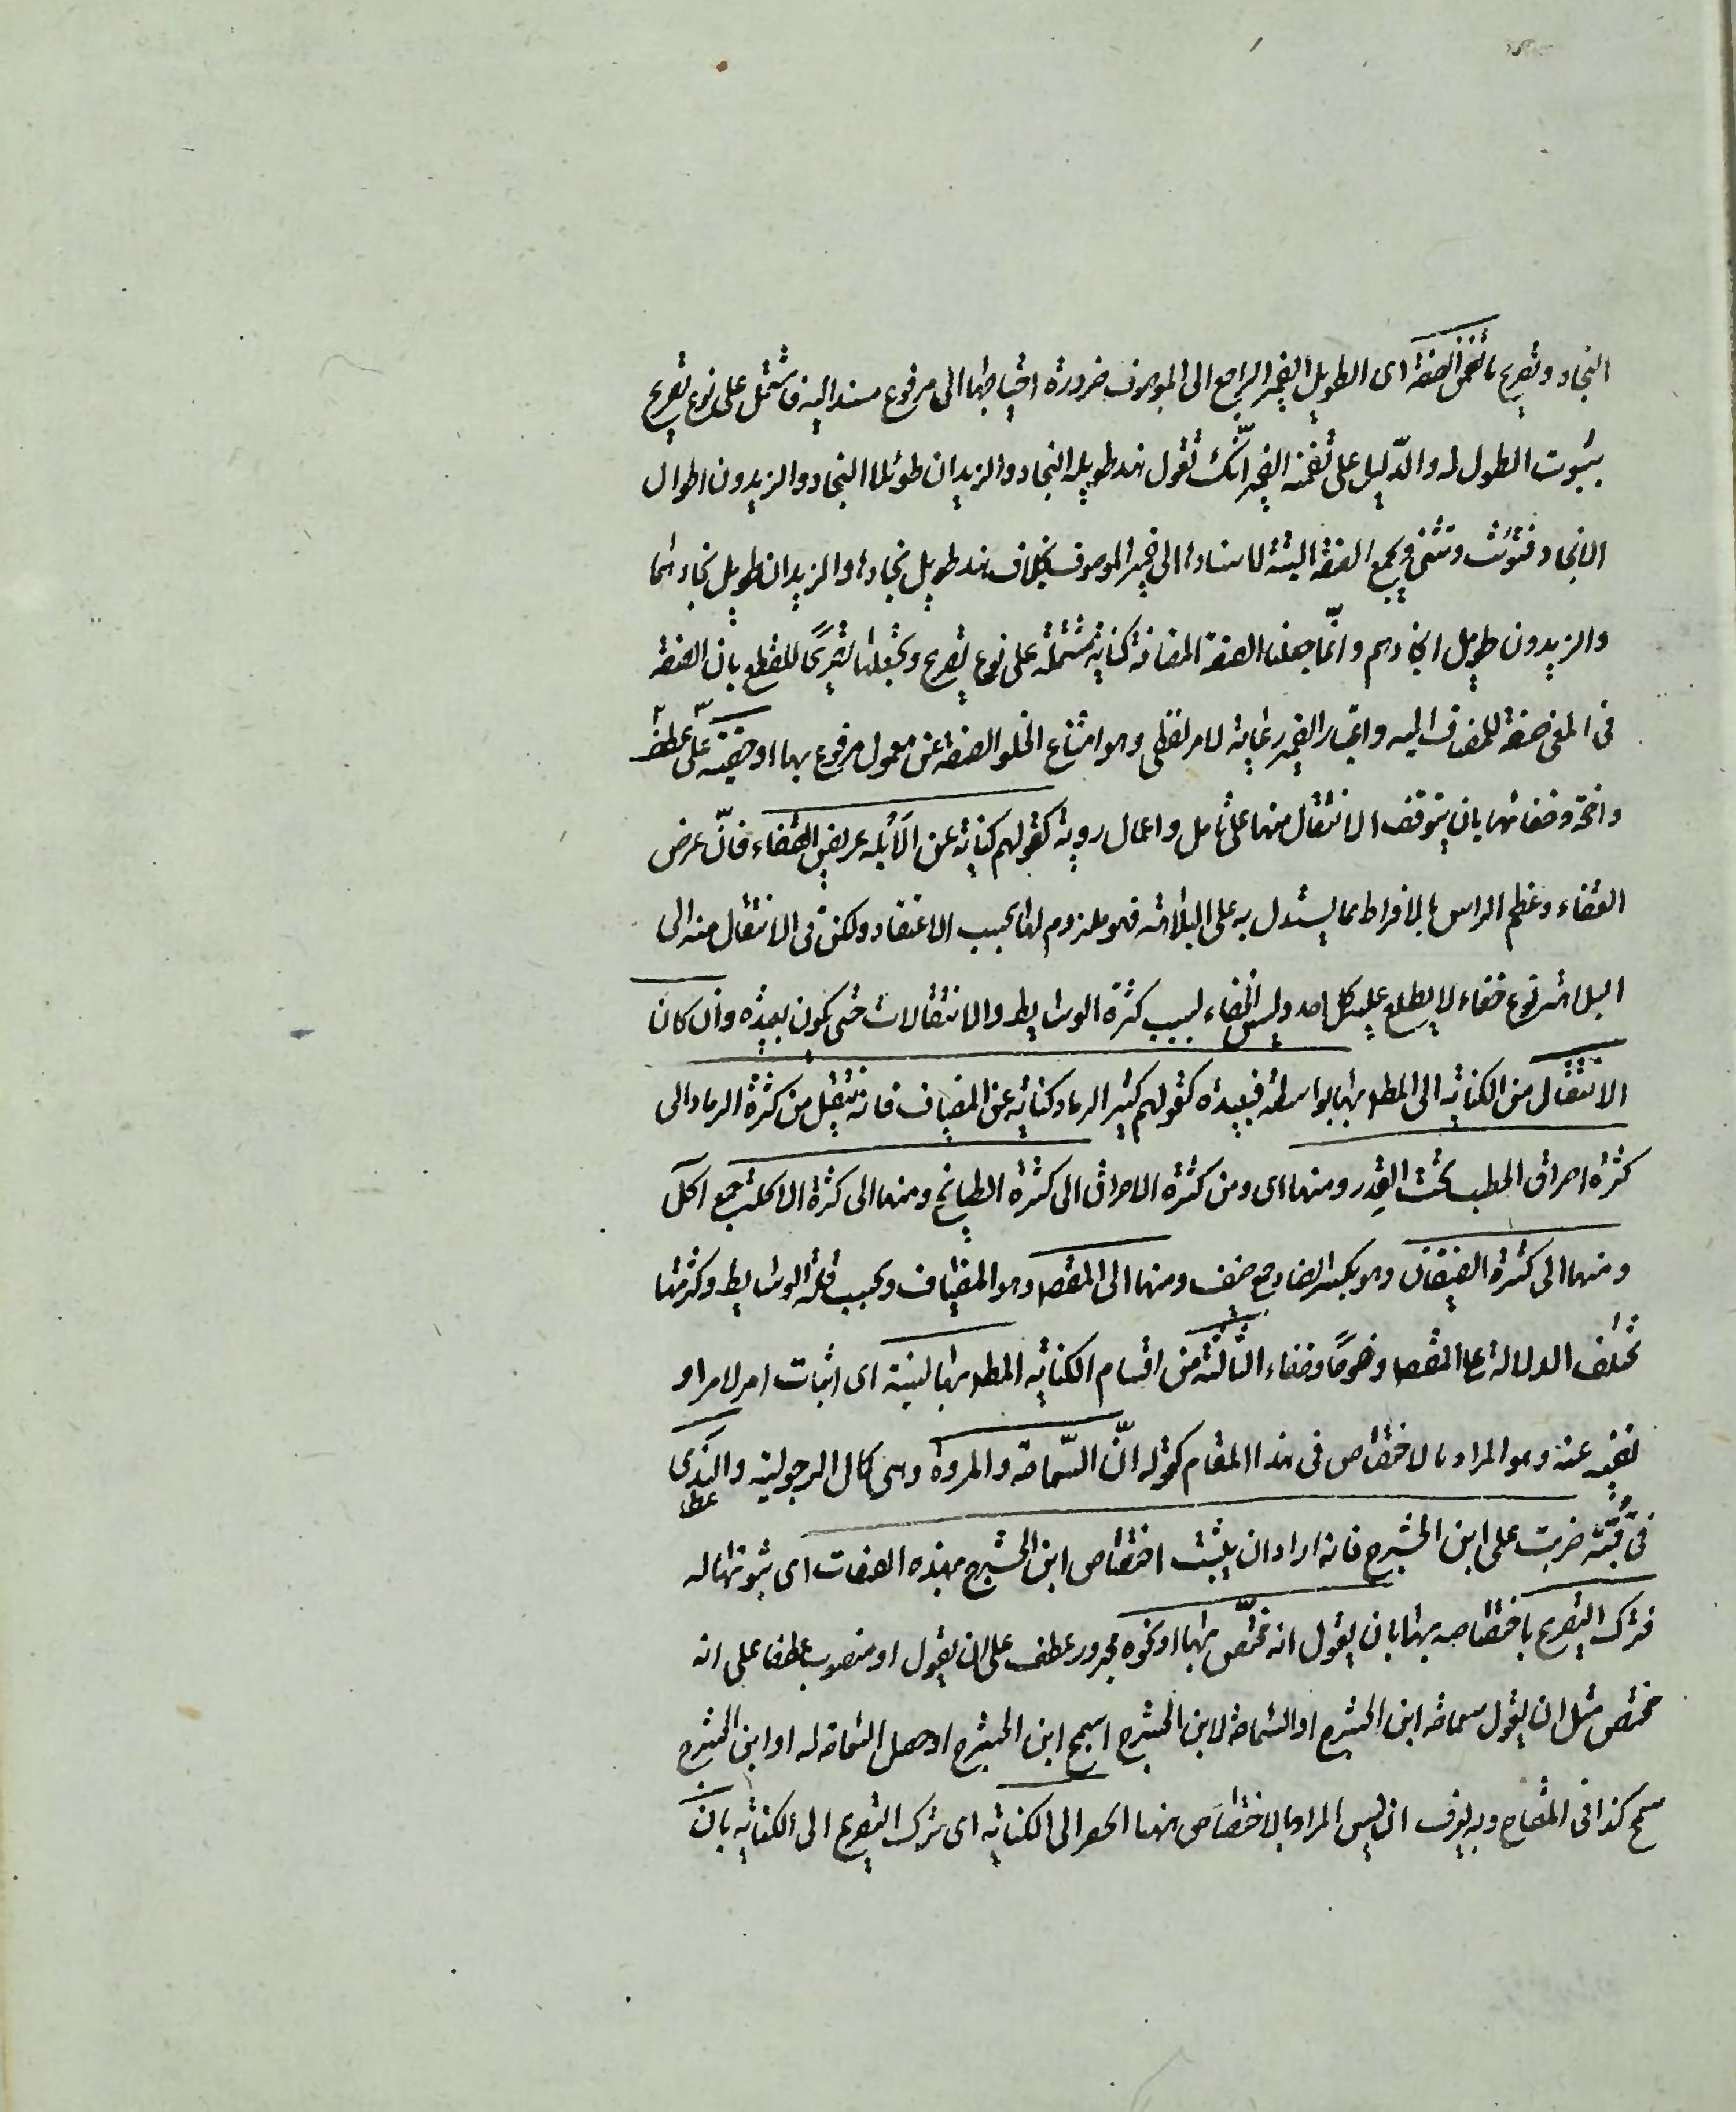 النجاد وتصريح ما لتضمن الصفة اى الطويل الضمير الراجع الى الموصوف ضرورة احتياجها الى مرفوع مسند اليه فاشتمل على نوع تصريح
بثبوت الطول له والدّليل على تضمنه الضمير انّك تقول هند طويلة النجاد والزيدان طويلا النجاد والزيدون طوال
الانجاد فتؤنث وتثنى وتجمع الصفة البتة لاسنادها الى ضمير الموصوف بخلاف هند طويل نجادها والزيدان طويل نجادهما
والزيدون طويل انجادهم وانّما جعلنا الصفة المضافة كناية مشتملة على نوع تصريح ولم نجعلها تصريحًا للقطع بان الصفة
فى المعنى صفة للمضاف اليه واعتبار الضمير رعاية لامر لفظى وهو امتناع الخلو الصفة عن معمول مرفوع بها او خفية على عطف
واضحة وخفائها بان يتوقف الانتقال منها على تأمل واعمال روية كقولهم كناية عن الأبله عريض القفاء فانّ عرض
القفاء وعظم الراس بالافراط مما يستدل به على البلاهة فهو ملزوم لها بحسب الاعتقاد ولكن فى الانتقال منه الى
البلاهة نوع خفاء لا يطلع عليه كل احد وليس الخفاء بسبب كثرة الوسايط والانتقالات حتى يكون بعيدة وان كان
الانتقال من الكناية الى المطلوب بها بواسطة فبعيدة كقولهم كثير الرماد كناية عن المضياف فانه ينتقل من كثرة الرماد الى
كثرة احراق الحطب تحت القِدر ومنها اى ومن كثرة الاحراق الى كثرة الطبايخ ومنها الى كثرة الاكلة جمع آكل
ومنها الى كثرة الضيفان وهو بكسر الضاد جمع ضيف ومنها الى المقصود وهو المضياف وبحسب قلة الوسايط وكثرتها
تختلف الدلالة على المقصود وضوحًا وخفاء الثالثة من اقسام الكناية المطلوب بها نسبة اى اثبات امر لامر او
نفيه عنه وهو المراد بالاختصاص فى هذا المقام كقوله انّ السّماحة والمروة وهى كمال الرجولية والندى
فى قُبّة ضربت على ابن الحشرج فانه اراد ان يثبت اختصاص ابن الحشرج بهذه الصفات اى ثبوتها له
فترك التصريح باختصاصه بها بان يقول انه مختصّ بها او نحوه مجرور عطف على ان يقول او منصوب عطفا على انه
مختص مثل ان يقول سماحة ابن الحشرج او السّماحة لابن الحشرج اسمح ابن الحشرج او حصل السّماحة له او ابن الحشرج
سمح كذا فى المفتاح وبه يعرف ان ليس المراد بالاختصاص ههنا الحصر الى الكناية اى ترك التصريح الى الكناية بان